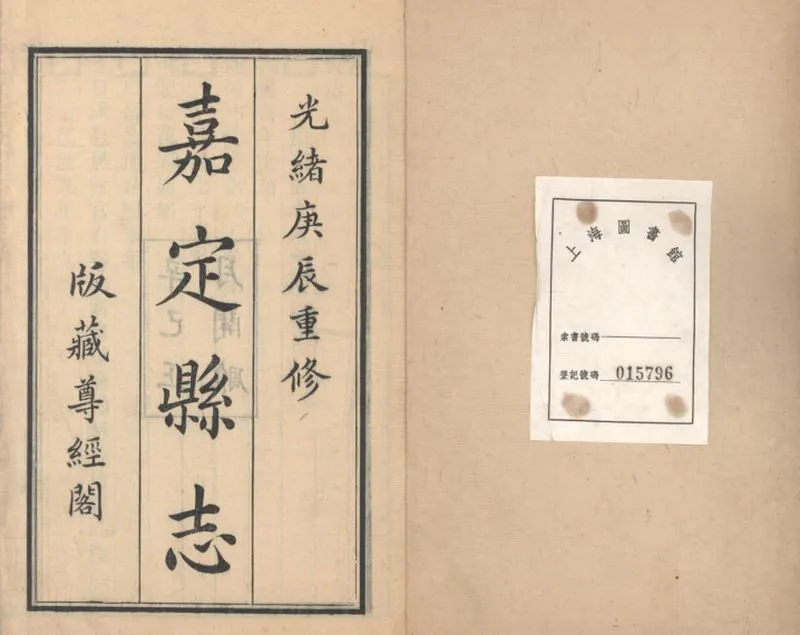 光緒庚辰重修
嘉定縣志
版藏尊經閣
上海圖書館
索書號碼
登記號碼 015796